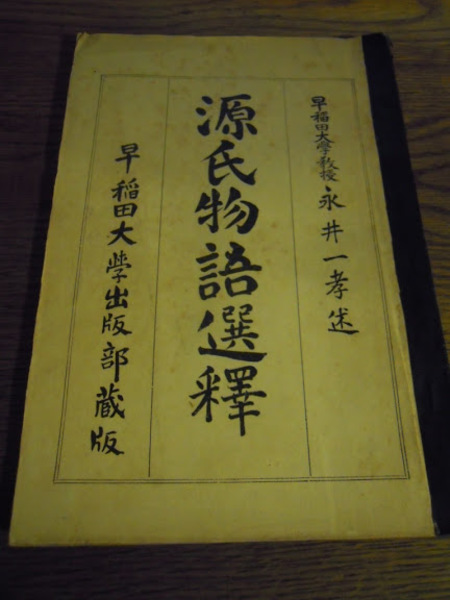 早稲田大学教授 永井一孝述
源氏物語選釋
早稲田大學出版部蔵版